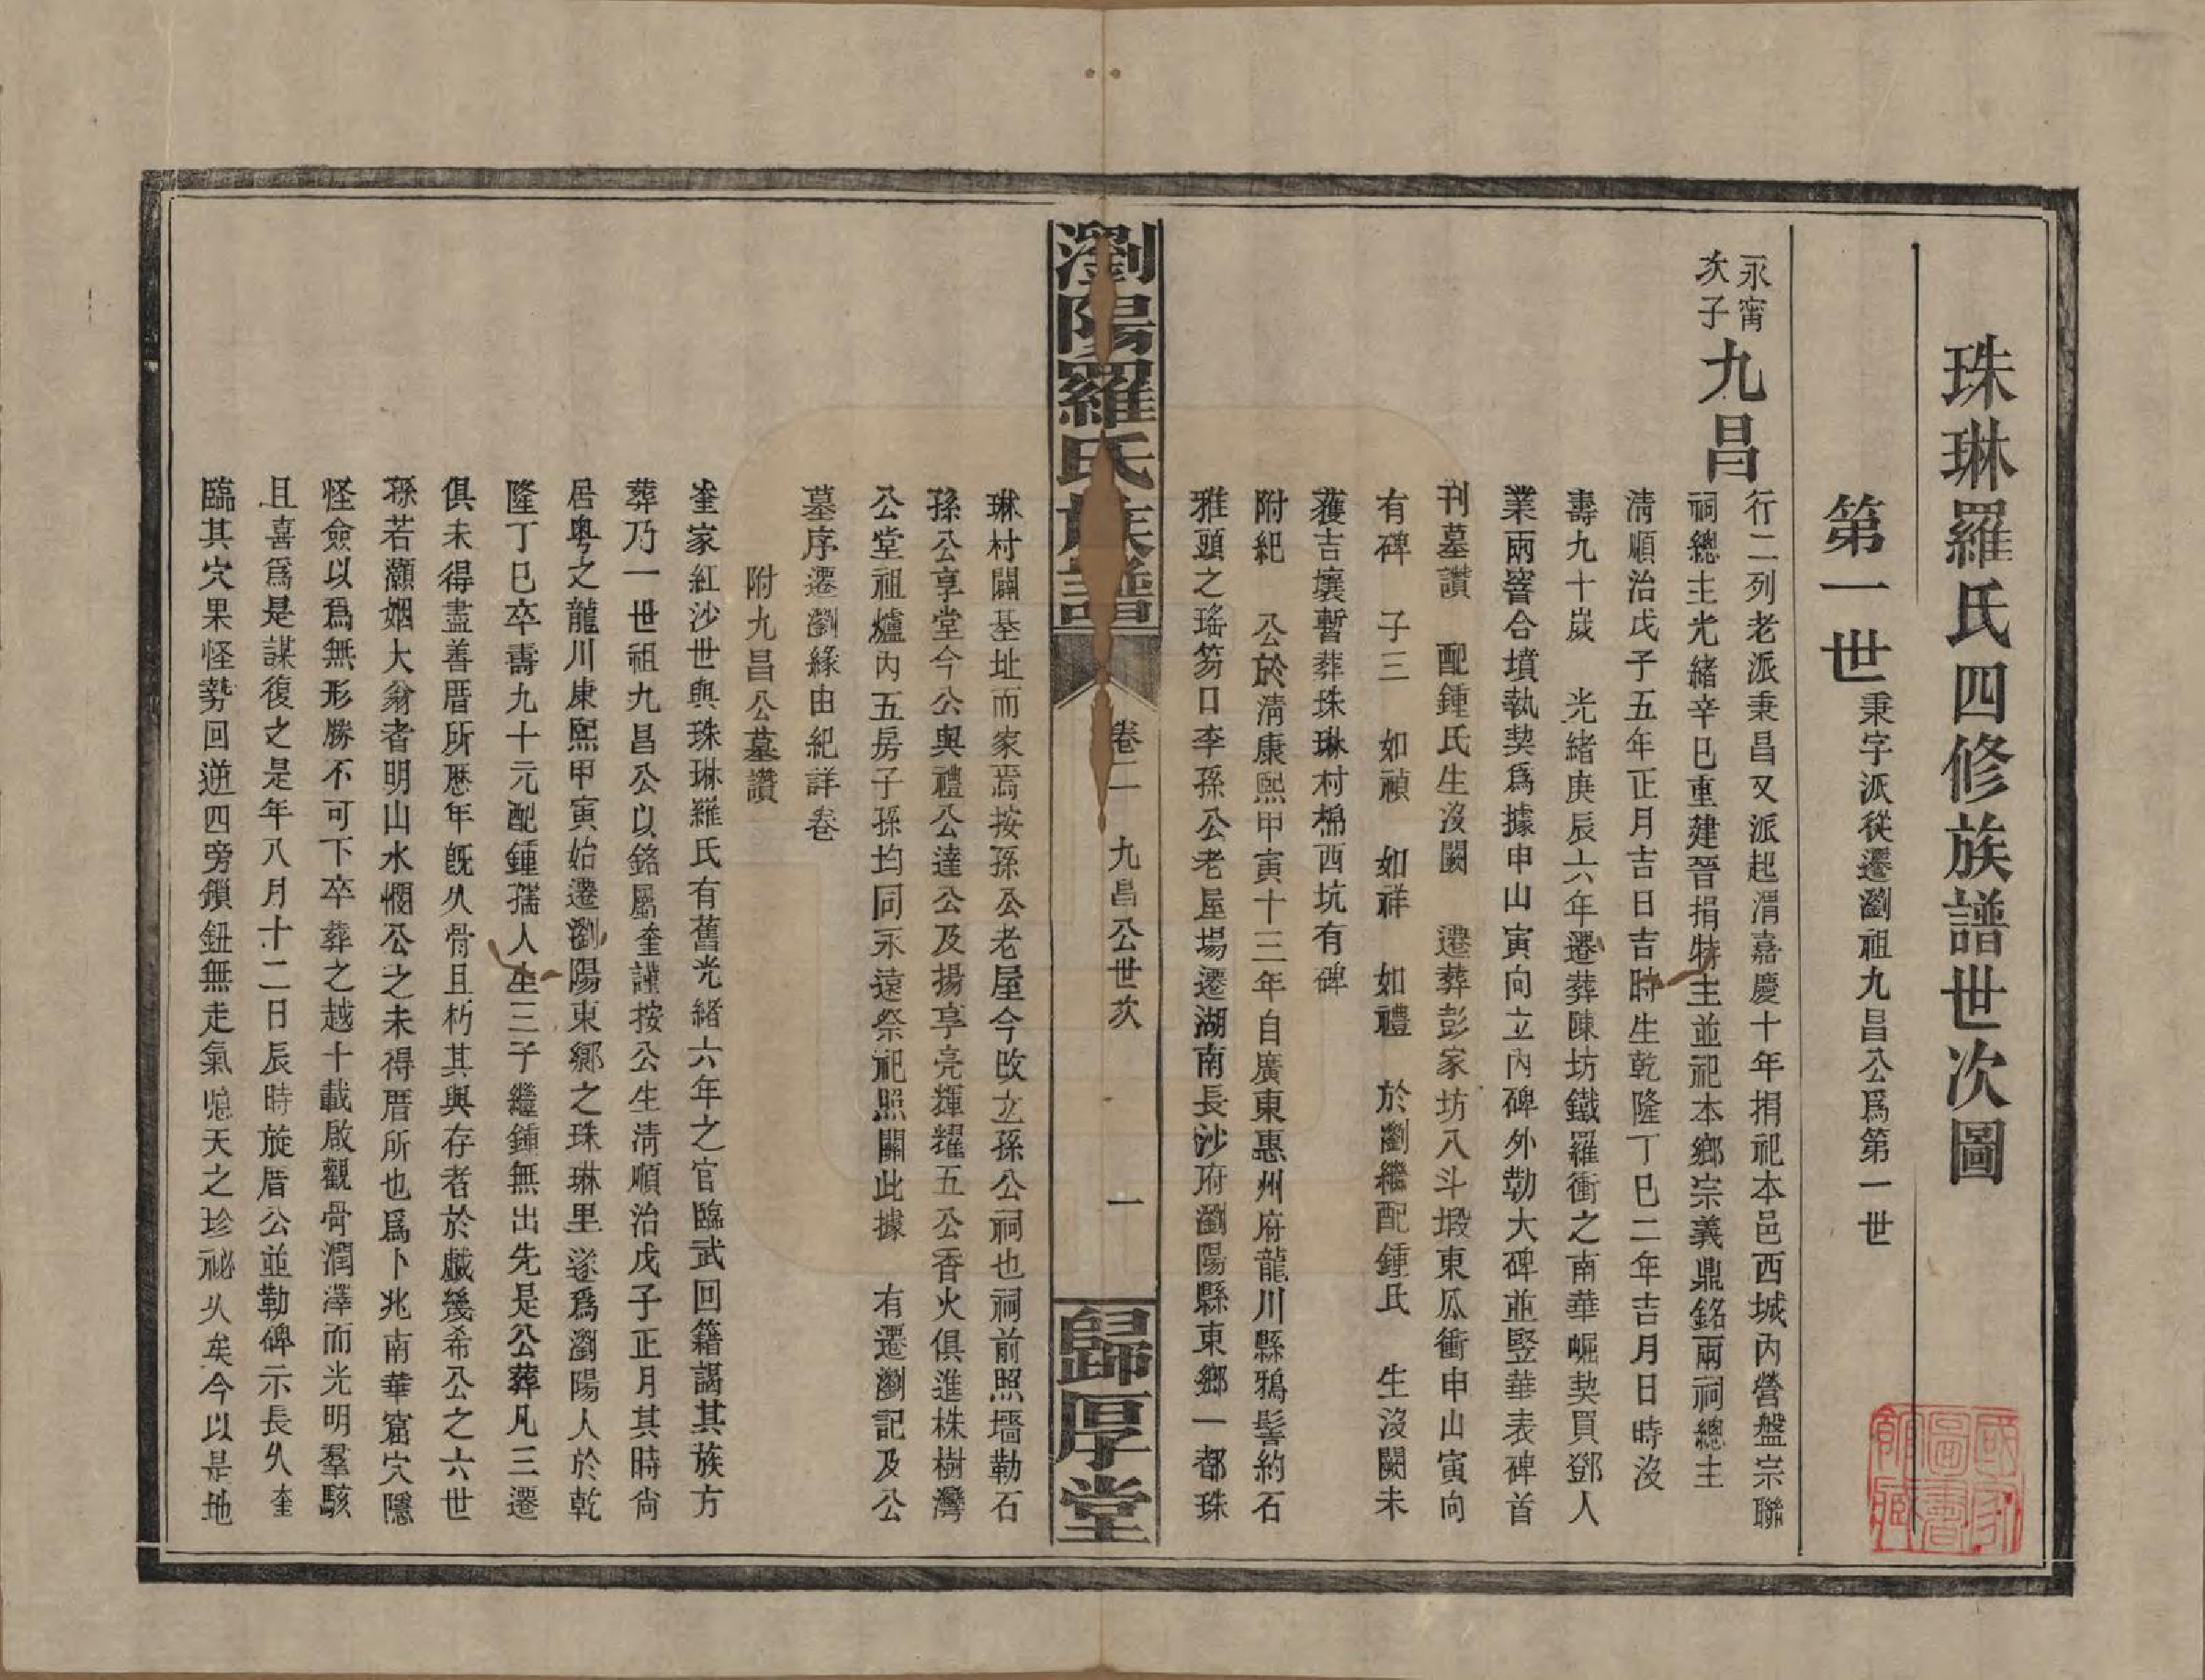 珠琳羅氏四修族譜世次圖
第一世秉字派從遷瀏祖九昌公爲第一世
永甯
次子
九昌
行二列老派秉昌又派起渭嘉慶十年捐祀本邑西城內營盤宗聯
祠總主光緒辛巳重建晉捐特主並祀本鄉宗義鼎銘兩祠總主
淸順治戊子五年正月吉日吉時生乾隆丁巳二年吉月日時沒
壽九十歲　光緒庚辰六年遷葬陳坊鐵羅衝之南華崛契買鄧人
業兩窨合墳執契爲據申山寅向立內碑外勒大碑並竪華表碑首
刊墓讃　配鍾氏生沒闕　遷葬彭家坊八斗塅東瓜衝申山寅向
有碑　子三　如禎　如祥　如禮　於瀏繼配鍾氏　生沒闕未
獲吉壤暫葬珠琳村棉西坑有碑
附紀　公於淸康熙甲寅十三年自廣東惠州府龍川縣鴉髻約石
雅頭之瑤笏口李孫公老屋場遷湖南長沙府瀏陽縣東鄉一都珠
瀏陽羅氏族譜
卷二　九昌公世次　一
歸厚堂
琳村闢基址而家焉按孫公老屋今改立孫公祠也祠前照墻勒石
孫公享堂今公與禮公達公及揚享亮輝耀五公香火俱進株樹灣
公堂祖爐內五房子孫均同永遠祭祀照關此據　有遷瀏記及公
墓序遷瀏緣由紀詳卷
附九昌公墓讚
奎家紅沙世與珠琳羅氏有舊光緒六年之官臨武回籍謁其族方
葬乃一世祖九昌公以銘屬奎謹按公生淸順治戊子正月其時尙
居粵之龍川康熙甲寅始遷瀏陽東鄉之珠琳里遂爲瀏陽人於乾
隆丁巳卒壽九十元配鍾孺人生三子繼鍾無出先是公葬凡三遷
俱未得盡善厝所歷年旣久骨且朽其與存者於戲幾希公之六世
孫若灝姻大翁者明山水憫公之未得厝所也爲卜兆南華窩穴隱
怪僉以爲無形勝不可下卒葬之越十載啟觀骨潤澤而光明羣駭
且喜爲是謀復之是年八月十二日辰時旋厝公並勒碑示長久奎
臨其穴果怪勢回逆四旁鎖鈕無走氣噫天之珍祕久矣今以是地
國家圖書館藏